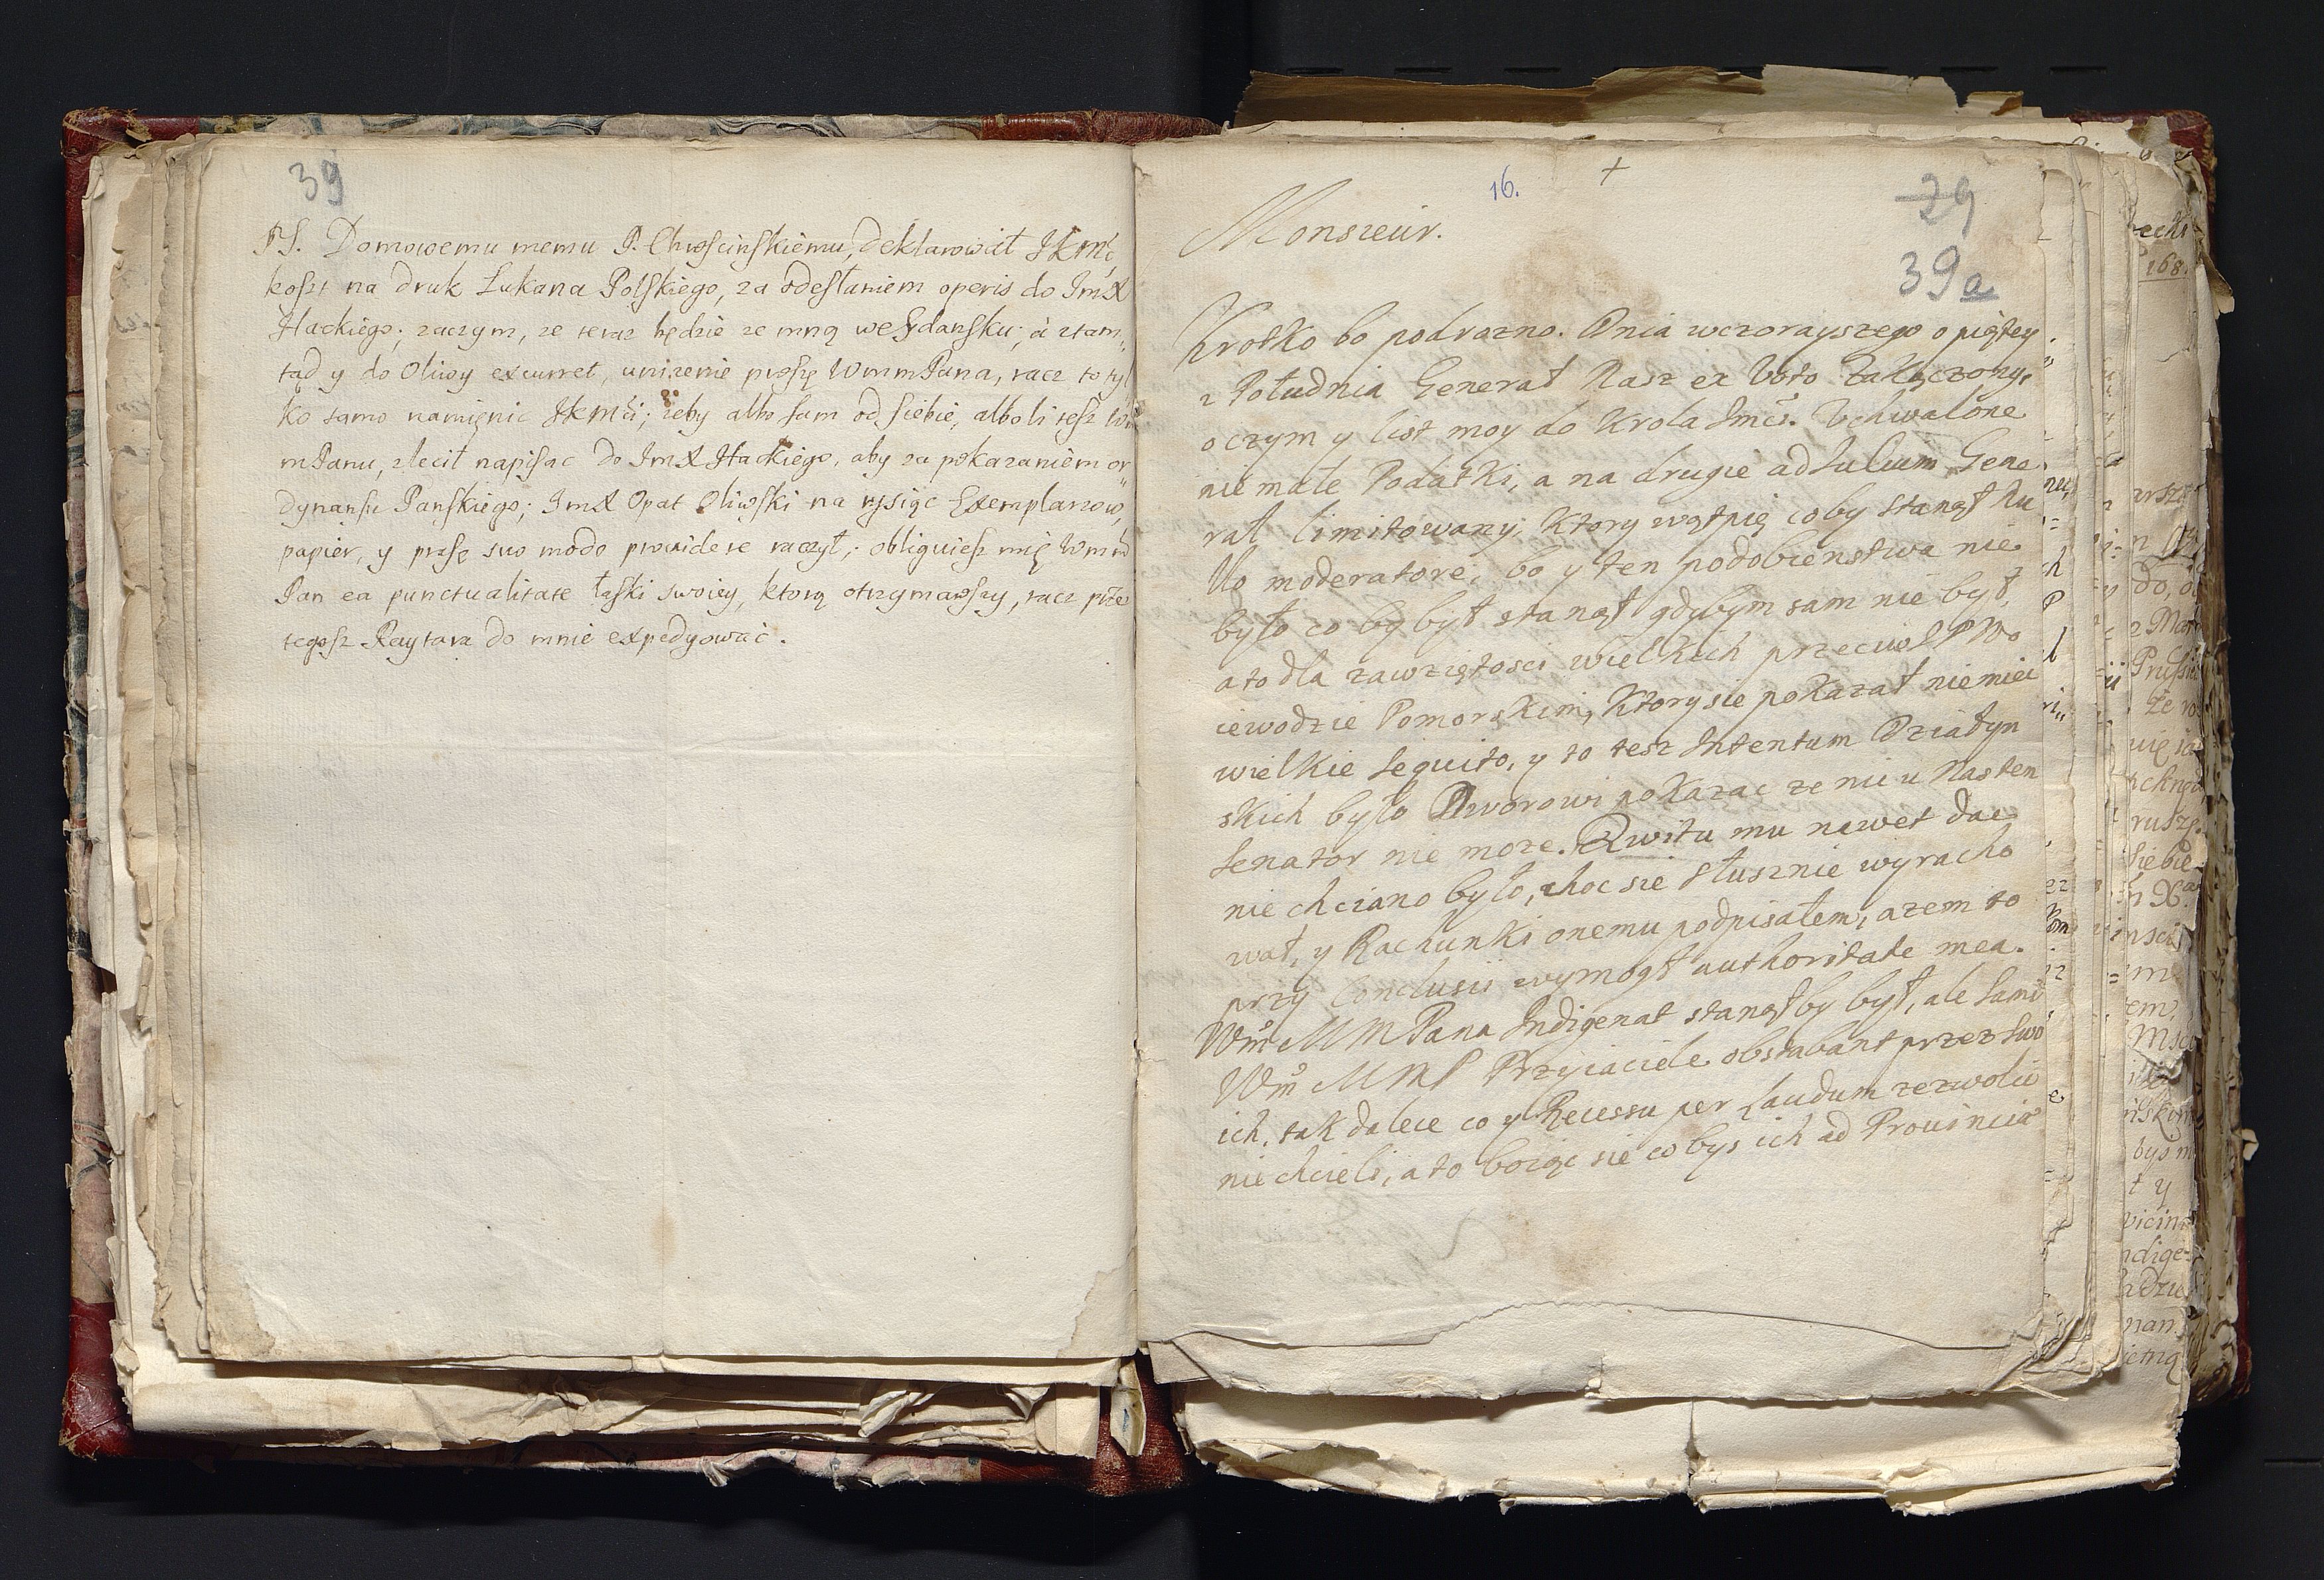 39
PS. Domowemu memu P. Chrościnskiemu, deklarował JKMć,
koszt na druk Lukana Polskiego, za odesłaniem operis do ImX
Hackiego; zaczym, ze teraz będzie ze mną we Gdansku; a ztam„
tąd y do Oliwy excurret, unizenie proszę WmmPana, racz to tyl
ko samo namięnic JKMći; zeby albo sam od siebie, albo li tesz Wm
mPanu, zlecił napisac do ImX Hackiego, aby za pokazaniem or
dynansu Panskiego; ImX Opat Oliwski na tysiąc Exemplarzow,
papier, y prasę suo modo prouidere raczył; obliguiesz mię Wmm
Pan ea punctualitate łaski swoiey, ktorą otrzymawszy, racz prze
tegosz Raytara do mnie expedyować.
16. +
29
39a
Monsieur.
Krotko bo podrazno. Dnia wczorayszego o piątey
z Południa Generał Nasz ex Voto Zakączony,
o czym y list moy do Krola Jmći. Vchwalone
nie małe Podatki, a na drugie ad Julium Gene
rał limitowany, Ktory wątpię coby stanął Nu
llo moderatore, bo y ten podobienstwa nie
było co by był stanął gdybym sam nie był,
a to dla zawziętosci wielkich przeciw JP Wo
iewodzie Pomorskim, Ktory sie pokazał nie miec
wielkie sequito, y to tesz Intentum Działyn
skich było Dworowi pokazac ze nic u Nas ten
Senator nie moze. Kwitu mu nawet dac
nie chciano było, choc sie słusznie wyracho
wał, y Rachunki onemu podpisałem, azem to
przy Conclusii wymogł authoritate mea.
Wm MMPana Indigenat stanąłby był, ale sami
Wm MMP Przyiaciele obstabant przez swo
ich, tak dalece co y Recessu per Laudum zezwolic
nie chcieli, a to boiąc sie co bys ich ad Prouincia